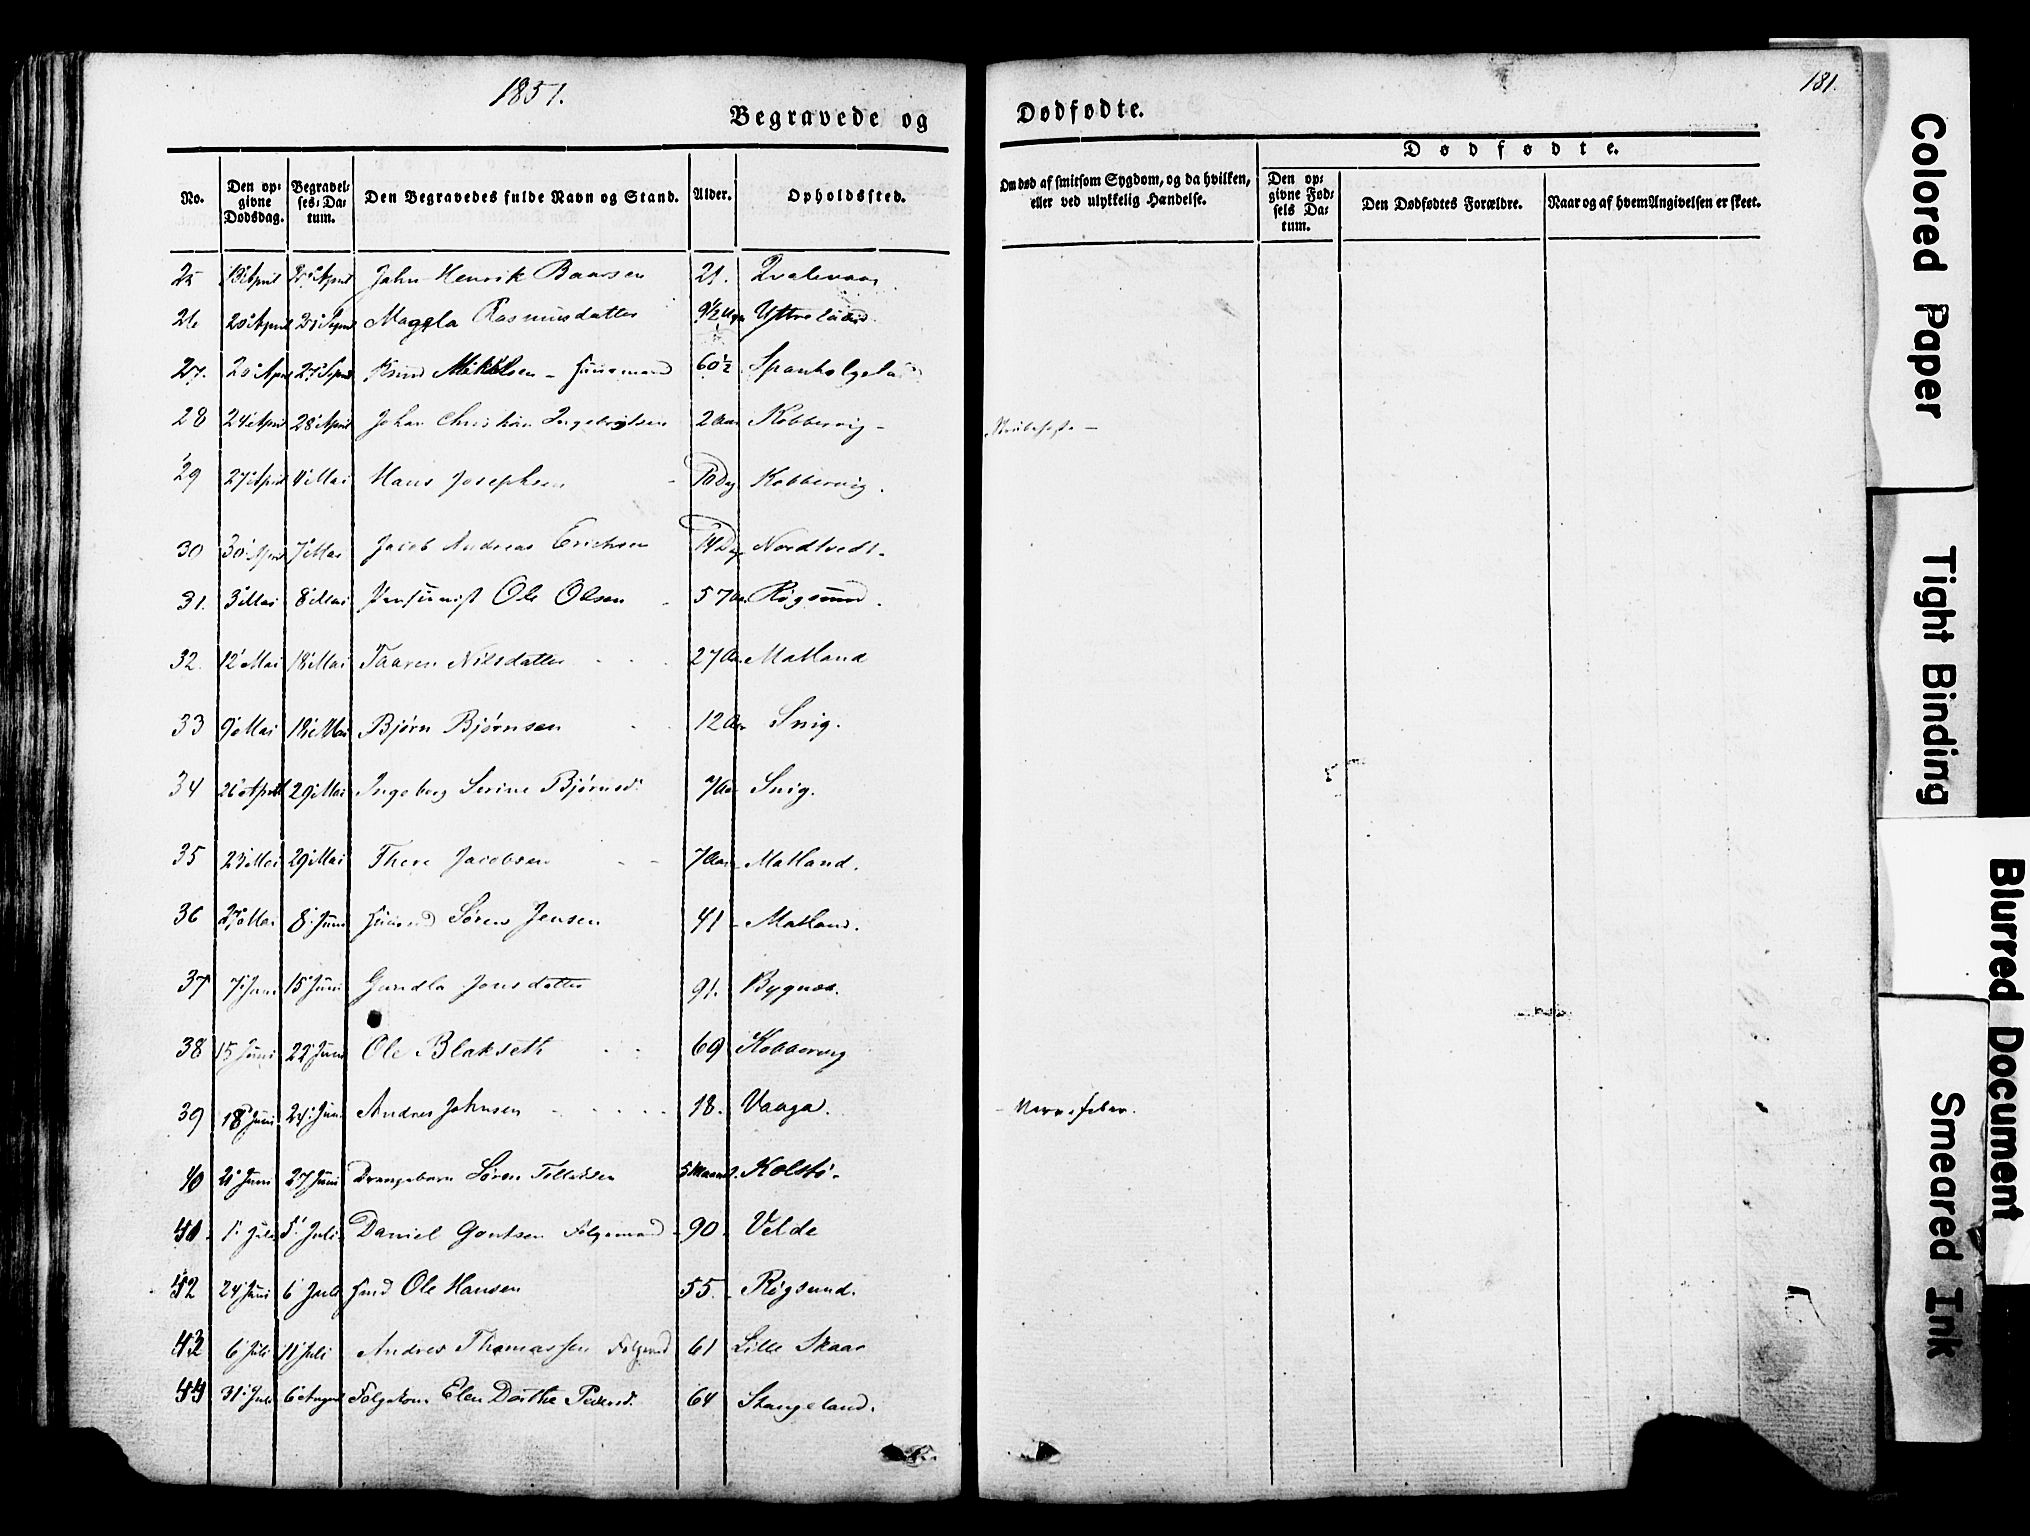 1851.
181.
Begravede og Dødfødte.
No.
Den opgivne Dødsdag.
Begravelses-Datum.
Den Begravedes fulde Navn og Stand.
Alder.
Opholdssted.
Om død af smitsom Sygdom, og da hvilken, eller ved ulykkelig Hændelse.
Dødfødte.
Den opgivne Fødsels Datum.
Den Dødfødtes Forældre.
Naar og af hvem Angivelsen er skeet.
25 April April John Henrik Baarsen 21.
26 20 April April Magla Rasmusdatter 9½
27. 20 April 27 April Knud Mikkelsen - Huusmand 60½
28 24 April 28 April Johan Christian Ingebrigtsen 2 Aar Kobbervig -
29 27 April 4 Mai Hans Josephsen - 10 Dg. Kobbervig.
30 30 April 7 Mai Jacob Andreas Erichsen 14 Dg. Nordtvedt.
31. 3 Mai 8 Mai Pensionist Ole Olsen - 57 Aar Røgsund.
32. 12 Mai 18 Mai Taaren Nilsdatter 27 Aar Matland
33 9 Mai 18 Mai Bjørn Bjørnsen 12 Aar Snig.
34 26 April 29 Mai Ingeborg Serine Bjørnsd. 7 Aar Snig.
35 23 Mai 29 Mai Thore Jacobsen - - 7 Aar Matland.
36 27 Mai 8 Juni Huusmd Søren Jensen 41 - Matland.
37 7 Juni 15 Juni Gundla Jonsdatter 91. Bygnæs.
38 15 Juni 22 Juni Ole Blakseth 69 Kobbervig
39 18 Juni 24 Juni Andres Johnsen 18. Vaaga. - Nervefeber.
40 21 Juni 27 Juni Drengebarn Søren Tollaksen 5 Maaned. Kolstø.
41. 1 Juli 5 Juli Daniel Gautsen Følgemand - 90. Velde
42 24 Juni 6 Juli Hmd Ole Hansen 55. Røgsund.
43 6 Juli 11 Juli Andres Thomassen Følgemd 61 Lille Skaar
44 31 Juli 6 August Følgekone Elen Dorthe Pedersd. 64 Stangeland.
Colored Paper
Tight Binding
Blurred Document
Smeared Ink